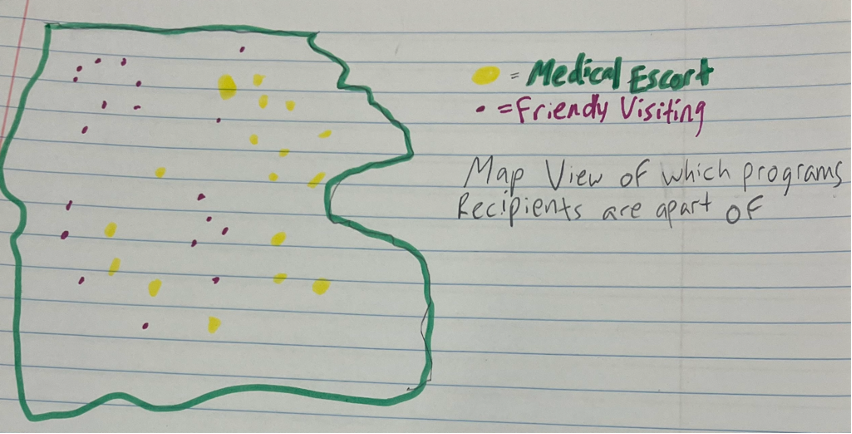 = Medical Escort
• = Friendly Visiting
Map View of which programs
Recipients are apart of